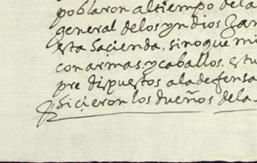 poblaron al tiempo de la
general de los yndios Gan
esta hacienda, sino que mi
con armas, y caballos. estu
pre dispuestos a la defensa
hicieron los dueños de la